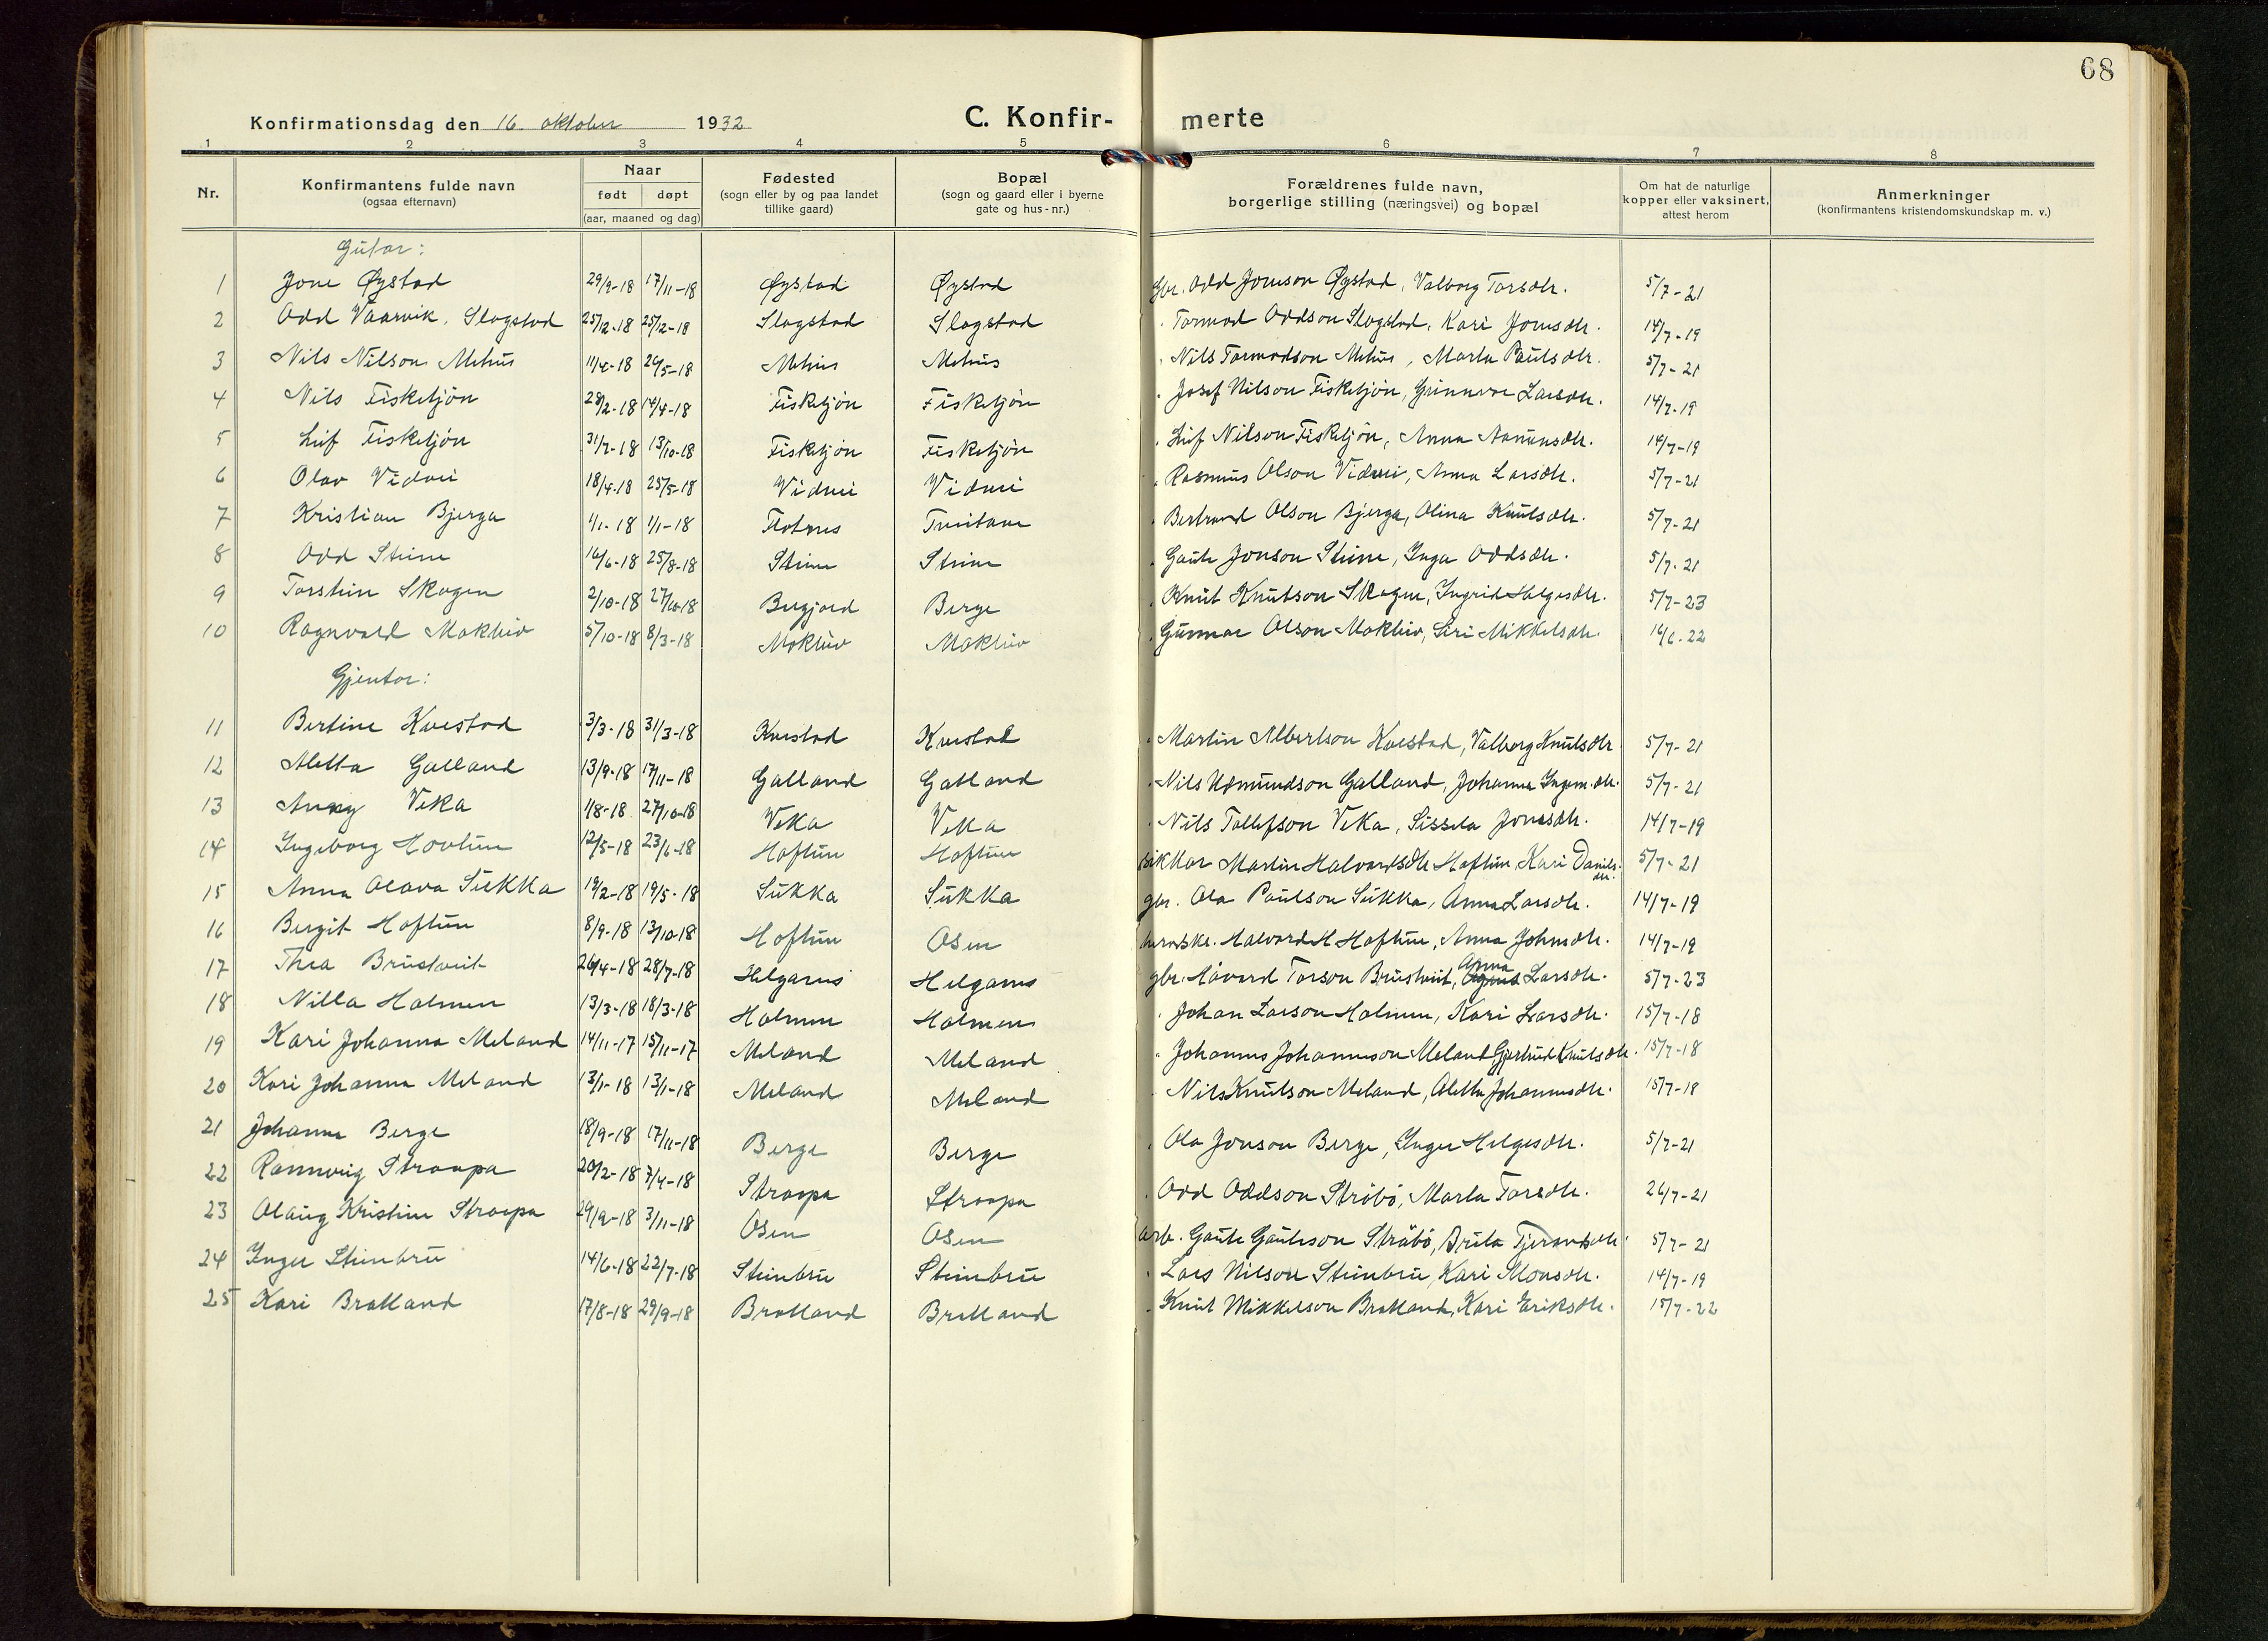 68
Konfirmationsdag den 16. oktober 1932 C. Konfir- merte
1 2 3 4 5 6 7 8
Nr. Konfirmantens fulde navn (ogsaa efternavn) Naar født døpt (aar, maaned og dag) Fødested (sogn eller by og paa landet tillike gaard) Bopæl (sogn og gaard eller i byerne gate og hus-nr.) Forældrenes fulde navn, borgerlige stilling (næringsvei) og bopæl Om hat de naturlige kopper eller vaksinert, attest herom Anmerkninger (konfirmantens kristendomskundskap m. v.)
Gutar:
1 Jone Øystad 29/9-18 17/11-18 Øystad Øystad Gbr. Odd Jonson Øystad, Valborg Torsdtr. 5/7-21
2 Odd Vaarvik Slogstad 25/12-18 25/12-18 Slogstad Slogstad Tormod Oddson Slogstad, Kari Jonsdtr. 14/7-19
3 Nils Nilson Mehus 11/4-18 26/5-18 Mehus Mehus Nils Tormodson Mehus, Marta Paulsdtr. 5/7-21
4 Nils Fisketjøn 28/2-18 14/4-18 Fisketjøn Fisketjøn Josef Nilson Fisketjøn, Gunnvor Larsdtr. 14/7-19
5 Leif Fisketjøn 31/7-18 13/10-18 Fisketjøn Fisketjøn Leif Nilson Fisketjøn, Anna 14/7-19
6 Olav Vidvei 18/4-18 25/5-18 Vidvei Vidvei Rasmus Olson Vidvei, Anna Larsdtr. 5/7-21
7 Kristian Bjerga 1/1-18 1/1-18 Flotnes Tveitane Bertrand Olson Bjerga, Olina Knutsdtr. 5/7-21
8 Odd Steine 16/6-18 25/8-18 Steine Steine Gaute Jonson Steine, Inga Oddsdtr. 5/7-21
9 Torstein Skogen 2/10-18 27/10-18 Bergjord Berge Knut Knutson Skogen, Ingrid Helgesdtr. 5/7-23
10 Ragnvald Mokleiv 5/10-18 8/3-18 Mokleiv Mokleiv Gunnar Olson Mokleiv, Siri Mikkelsdtr. 16/6-22
Gjentor:
11 Bertine Kvestad 3/3-18 31/3-18 Kvestad Kvestad Martin Albertson Kvestad, Valborg Knutsdtr 5/7-21
12 Aletta Galland 13/9-18 17/11-18 Galland Galland Nils Osmundson Galland, Johanna Ingem.dtr. 5/7-21
13 Anny Veka 1/8-18 27/10-18 Veka Veka Nils Tollefson Veka, Sissela Jonsdtr. 14/7-19
14 Ingeborg Hovtun 12/5-18 23/6-18 Hoftun Hoftun Martin Halvardsdtr Hoftun, Kari Daniels- dtr. 5/7-21
15 Anna Olava Sukka 19/2-18 19/5-18 Sukka Sukka gbr. Ola Paulson Sukka, Anna Larsdtr. 14/7-19
16 Bergit Hoftun 8/9-18 13/10-18 Hoftun Osen Halvard H Hoftun, Anna Johnsdtr. 14/7-19
17 Thea Brustveit 26/4-18 28/7-18 Helganes Helganes gbr. Håvard Torson Brustveit, Anna Larsdtr. 5/7-23
18 Nilla Holmen 13/3-18 18/3-18 Holmen Holmen Johan Larson Holmen, Kari Larsdtr. 15/7-18
19 Kari Johanna Meland 14/11-17 15/11-17 Meland Meland Johannes Johanneson Meland, Gjertrud Knutsdtr. 15/7-18
20 Kari Johanna Meland 13/1-18 13/1-18 Meland Meland Nils Knutson Meland, Aletta Johannesdtr. 15/7-18
21 Johanna Berge 18/9-18 17/11-18 Berge Berge Ola Jonson Berge, Inger Helgesdtr. 5/7-21
22 Rannveig Straapa 20/2-18 7/4-18 Straapa Straapa Odd Oddson Stråbø, Marta Torsdtr. 26/7-21
23 Olaug Kristine Straapa 29/9-18 3/11-18 Osen Osen Arb. Gaute Gauteson Stråbø, Brita Tjerandsdtr 5/7-21
24 Inger Steinbru 14/6-18 22/7-18 Steinbru Steinbru Lars Nilson Steinbru, Kari Monsdtr. 14/7-19
25 Kari Bratland 17/8-18 29/9-18 Bratland Bratland Knut Mikkelson Bratland, Kari Eriksdtr. 15/7-22